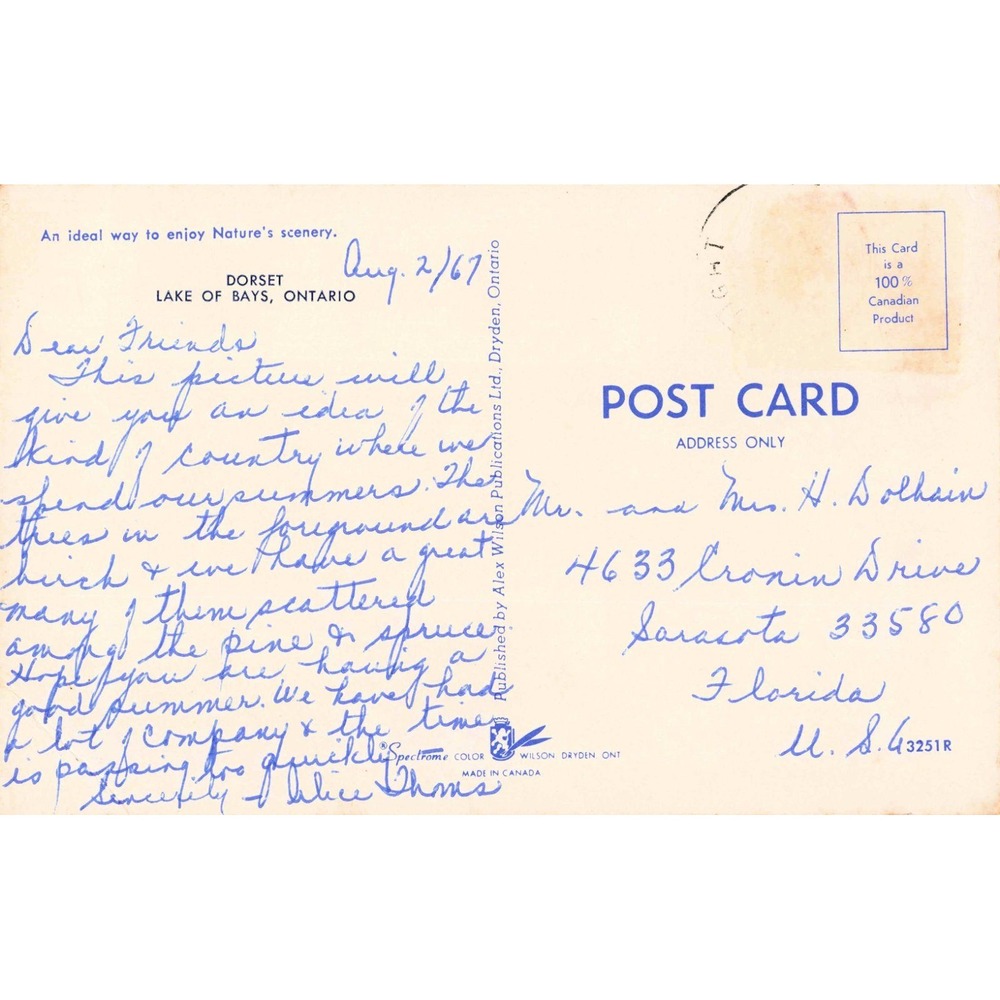 An ideal way to enjoy Nature's scenery.
DORSET
LAKE OF BAYS, ONTARIO
Aug. 2/67
Dear Friends
This picture will
give you an idea of the
kind of country where we
spend our summers. The
trees in the foreground are
birch & we have a great
many of them scattered
among the pine & spruce.
Hope you are having a
good summer. We have had
a lot of company & the time
is passing too quickly.
Sincerely - Alice Thoms
Published by Alex Wilson Publications Ltd., Dryden, Ontario
Spectrome COLOR WILSON DRYDEN ONT
MADE IN CANADA
This Card
is a
100%
Canadian
Product
POST CARD
ADDRESS ONLY
Mr. and Mrs. H. Dolhain
4633 Cronin Drive
Sarasota 33580
Florida
U.S.A
3251R